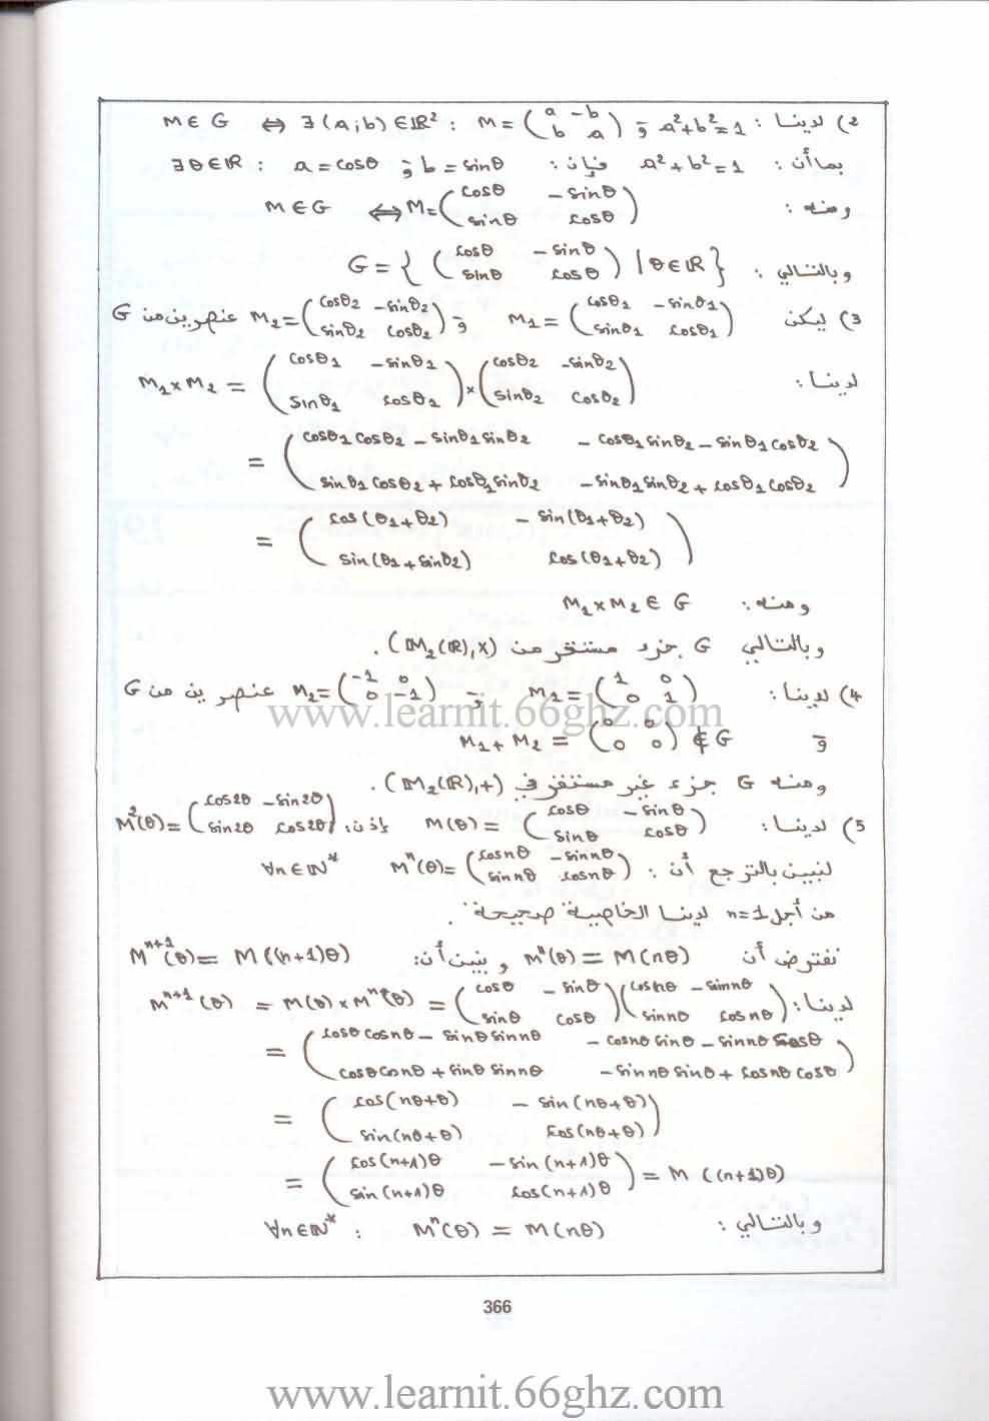 2) لدينا : M ∈ G ⇔ ∃(a;b) ∈ ℝ² : M = (a -b ; b a) و a²+b²=1
بما أن : a²+b²=1 فإن : ∃θ∈ℝ : a=cosθ و b=sinθ
ومنه : M∈G ⇔ M=(cosθ -sinθ ; sinθ cosθ)
وبالتالي : G={ (cosθ -sinθ ; sinθ cosθ) | θ∈ℝ }
3) ليكن M₁=(cosθ₁ -sinθ₁ ; sinθ₁ cosθ₁) و M₂=(cosθ₂ -sinθ₂ ; sinθ₂ cosθ₂) عنصرين من G
لدينا : M₁×M₂ = (cosθ₁ -sinθ₁ ; sinθ₁ cosθ₁)×(cosθ₂ -sinθ₂ ; sinθ₂ cosθ₂)
= (cosθ₁cosθ₂ - sinθ₁sinθ₂ -cosθ₁sinθ₂ - sinθ₁cosθ₂ ; sinθ₁cosθ₂ + cosθ₁sinθ₂ -sinθ₁sinθ₂ + cosθ₁cosθ₂)
= (cos(θ₁+θ₂) -sin(θ₁+θ₂) ; sin(θ₁+sinθ₂) cos(θ₁+θ₂))
ومنه : M₁×M₂ ∈ G
وبالتالي G جزء مستقر من (M₂(ℝ),×).
4) لدينا : M₁=(1 0 ; 0 1) و M₂=(-1 0 ; 0 -1) عنصرين من G
www.learnit.66ghz.com
و M₁+M₂ = (0 0 ; 0 0) ∉ G
ومنه G جزء غير مستقر في (M₂(ℝ),+).
5) لدينا : M(θ)=(cosθ -sinθ ; sinθ cosθ) إذن : M²(θ)=(cos2θ -sin2θ ; sin2θ cos2θ)
لنبين بالترجع أن : Mⁿ(θ)=(cosnθ -sinnθ ; sinnθ cosnθ) ∀n∈ℕ*
من أجل n=1 لدينا الخاصية "صحيحة".
نفترض أن Mⁿ(θ)=M(nθ) و نبين أن : Mⁿ⁺¹(θ)=M((n+1)θ)
لدينا : Mⁿ⁺¹(θ) = M(θ)×Mⁿ(θ) = (cosθ -sinθ ; sinθ cosθ)(cosnθ -sinnθ ; sinnθ cosnθ)
= (cosθcosnθ - sinθsinnθ -cosnθsinθ - sinnθcosθ ; cosθcosnθ + sinθsinnθ -sinnθsinθ + cosnθcosθ)
= (cos(nθ+θ) -sin(nθ+θ) ; sin(nθ+θ) cos(nθ+θ))
= (cos(n+1)θ -sin(n+1)θ ; sin(n+1)θ cos(n+1)θ) = M((n+1)θ)
وبالتالي : ∀n∈ℕ* : Mⁿ(θ) = M(nθ)
366
www.learnit.66ghz.com